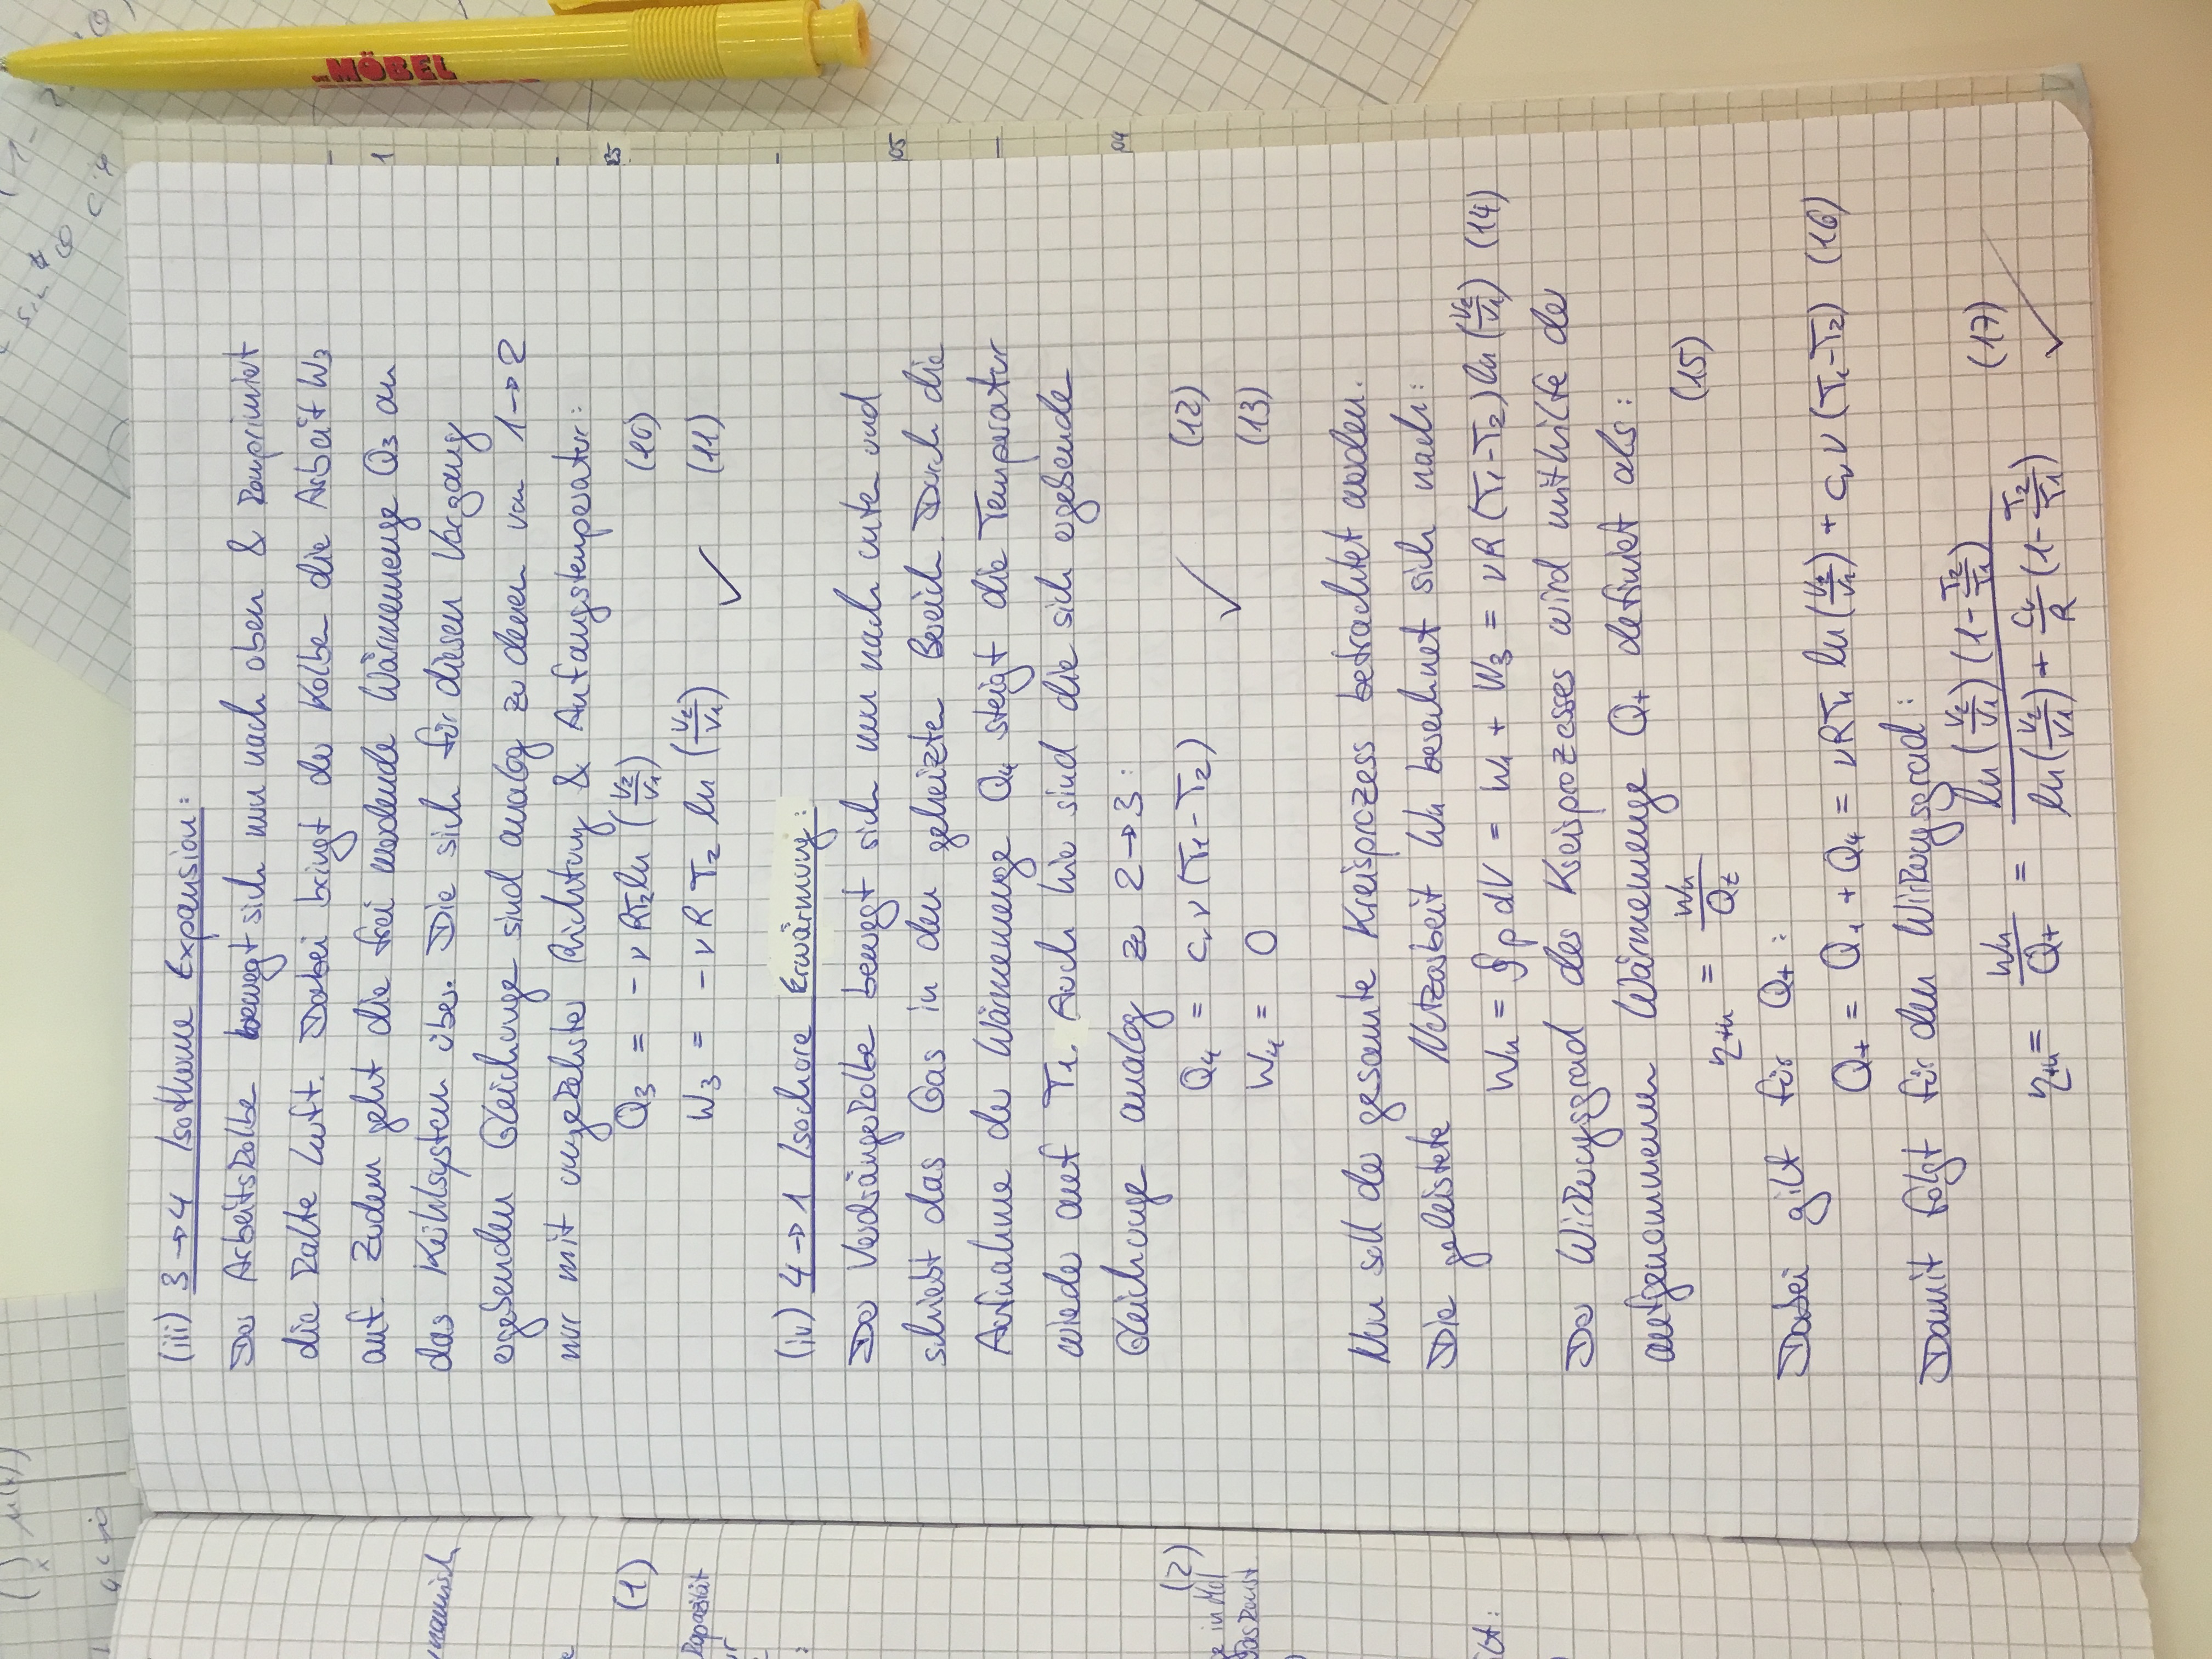 (iii) 3→4 Isotherme Expansion:
Der Arbeitskolben bewegt sich nun nach oben & komprimiert
die kalte Luft. Dabei bringt der Kolben die Arbeit W₃
auf. Zudem geht die frei werdende Wärmemenge Q₃ an
das Kühlsystem über. Die sich für diesen Vorgang
ergebenden Gleichungen sind analog zu denen von 1→2
nur mit umgekehrter Richtung & Anfangstemperatur:
Q₃ = -νRT₂ln(V₂/V₁) (10)
W₃ = -νRT₂ ln(V₂/V₁) ✓ (11)
(iv) 4→1 Isochore Erwärmung:
Der Verdrängerkolben bewegt sich nun nach unten und
schiebt das Gas in den geheizten Bereich. Durch die
Aufnahme der Wärmemenge Q₄ steigt die Temperatur
wieder auf T₁. Auch hier sind die sich ergebende
Gleichungen analog zu 2→3:
Q₄ = cᵥν(T₁-T₂) ✓ (12)
W₄ = 0 (13)
Nun soll der gesamte Kreisprozess betrachtet werden.
Die geleistete Nutzarbeit Wₙ berechnet sich nach:
Wₙ = ∮p dV = W₁ + W₃ = νR(T₁-T₂)ln(V₂/V₁) (14)
Der Wirkungsgrad des Kreisprozesses wird mithilfe der
aufgenommenen Wärmemenge Q₊ definiert als:
η_th = Wₙ/Q₊ (15)
Dabei gilt für Q₊:
Q₊ = Q₁ + Q₄ = νRT₁ ln(V₂/V₁) + cᵥν(T₁-T₂) (16)
Damit folgt für den Wirkungsgrad:
η_th = Wₙ/Q₊ = ln(V₂/V₁)(1-T₂/T₁) / ln(V₂/V₁) + cᵥ/R (1-T₂/T₁) (17) ✓
(1)
kapazität
(2)
in Mol
MÖBEL
05
04